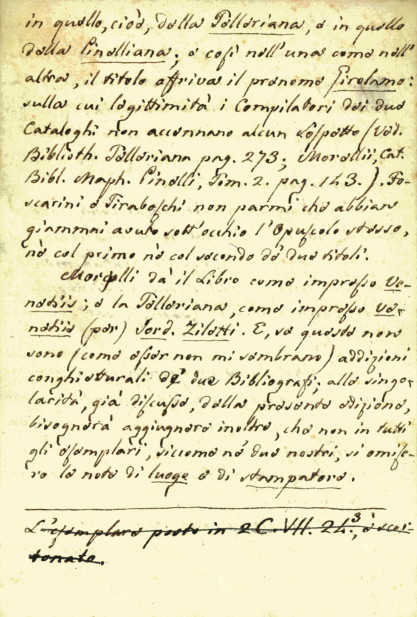 in quello, cioè, della Telleriana, e in quello
della Pinelliana; e così nell'una come nell'
altra, il titolo offriva il prenome Girolamo:
sulla cui legittimità i Compilatori dei due
Cataloghi non accennano alcun sospetto (Ved.
Biblioth. Telleriana pag. 273; Morellii, Cat.
Bibl. Maph. Pinelli, Tom. 2. pag. 143.). Fo-
scarini e Tiraboschi non parmi che abbian
giammai avuto sott'occhio l'Opuscolo stesso,
nè col primo nè col secondo de' due titoli.
Morelli dà il Libro come impresso Ve-
netiis; e la Telleriana, come impresso Ve-
netiis (per) Jord. Ziletti. E, se queste non
sono (come esser non mi sembrano) addizioni
conghietturali de' due Bibliografi, alla singo-
larità, già discussa, della presente edizione,
bisognerà aggiugnere inoltre, che non in tutti
gli esemplari, siccome ne' due nostri, si omise-
ro le note di luogo e di stampatore.
L'esemplare posto in 2 C. VII. 24.3, è scar-
tonato.